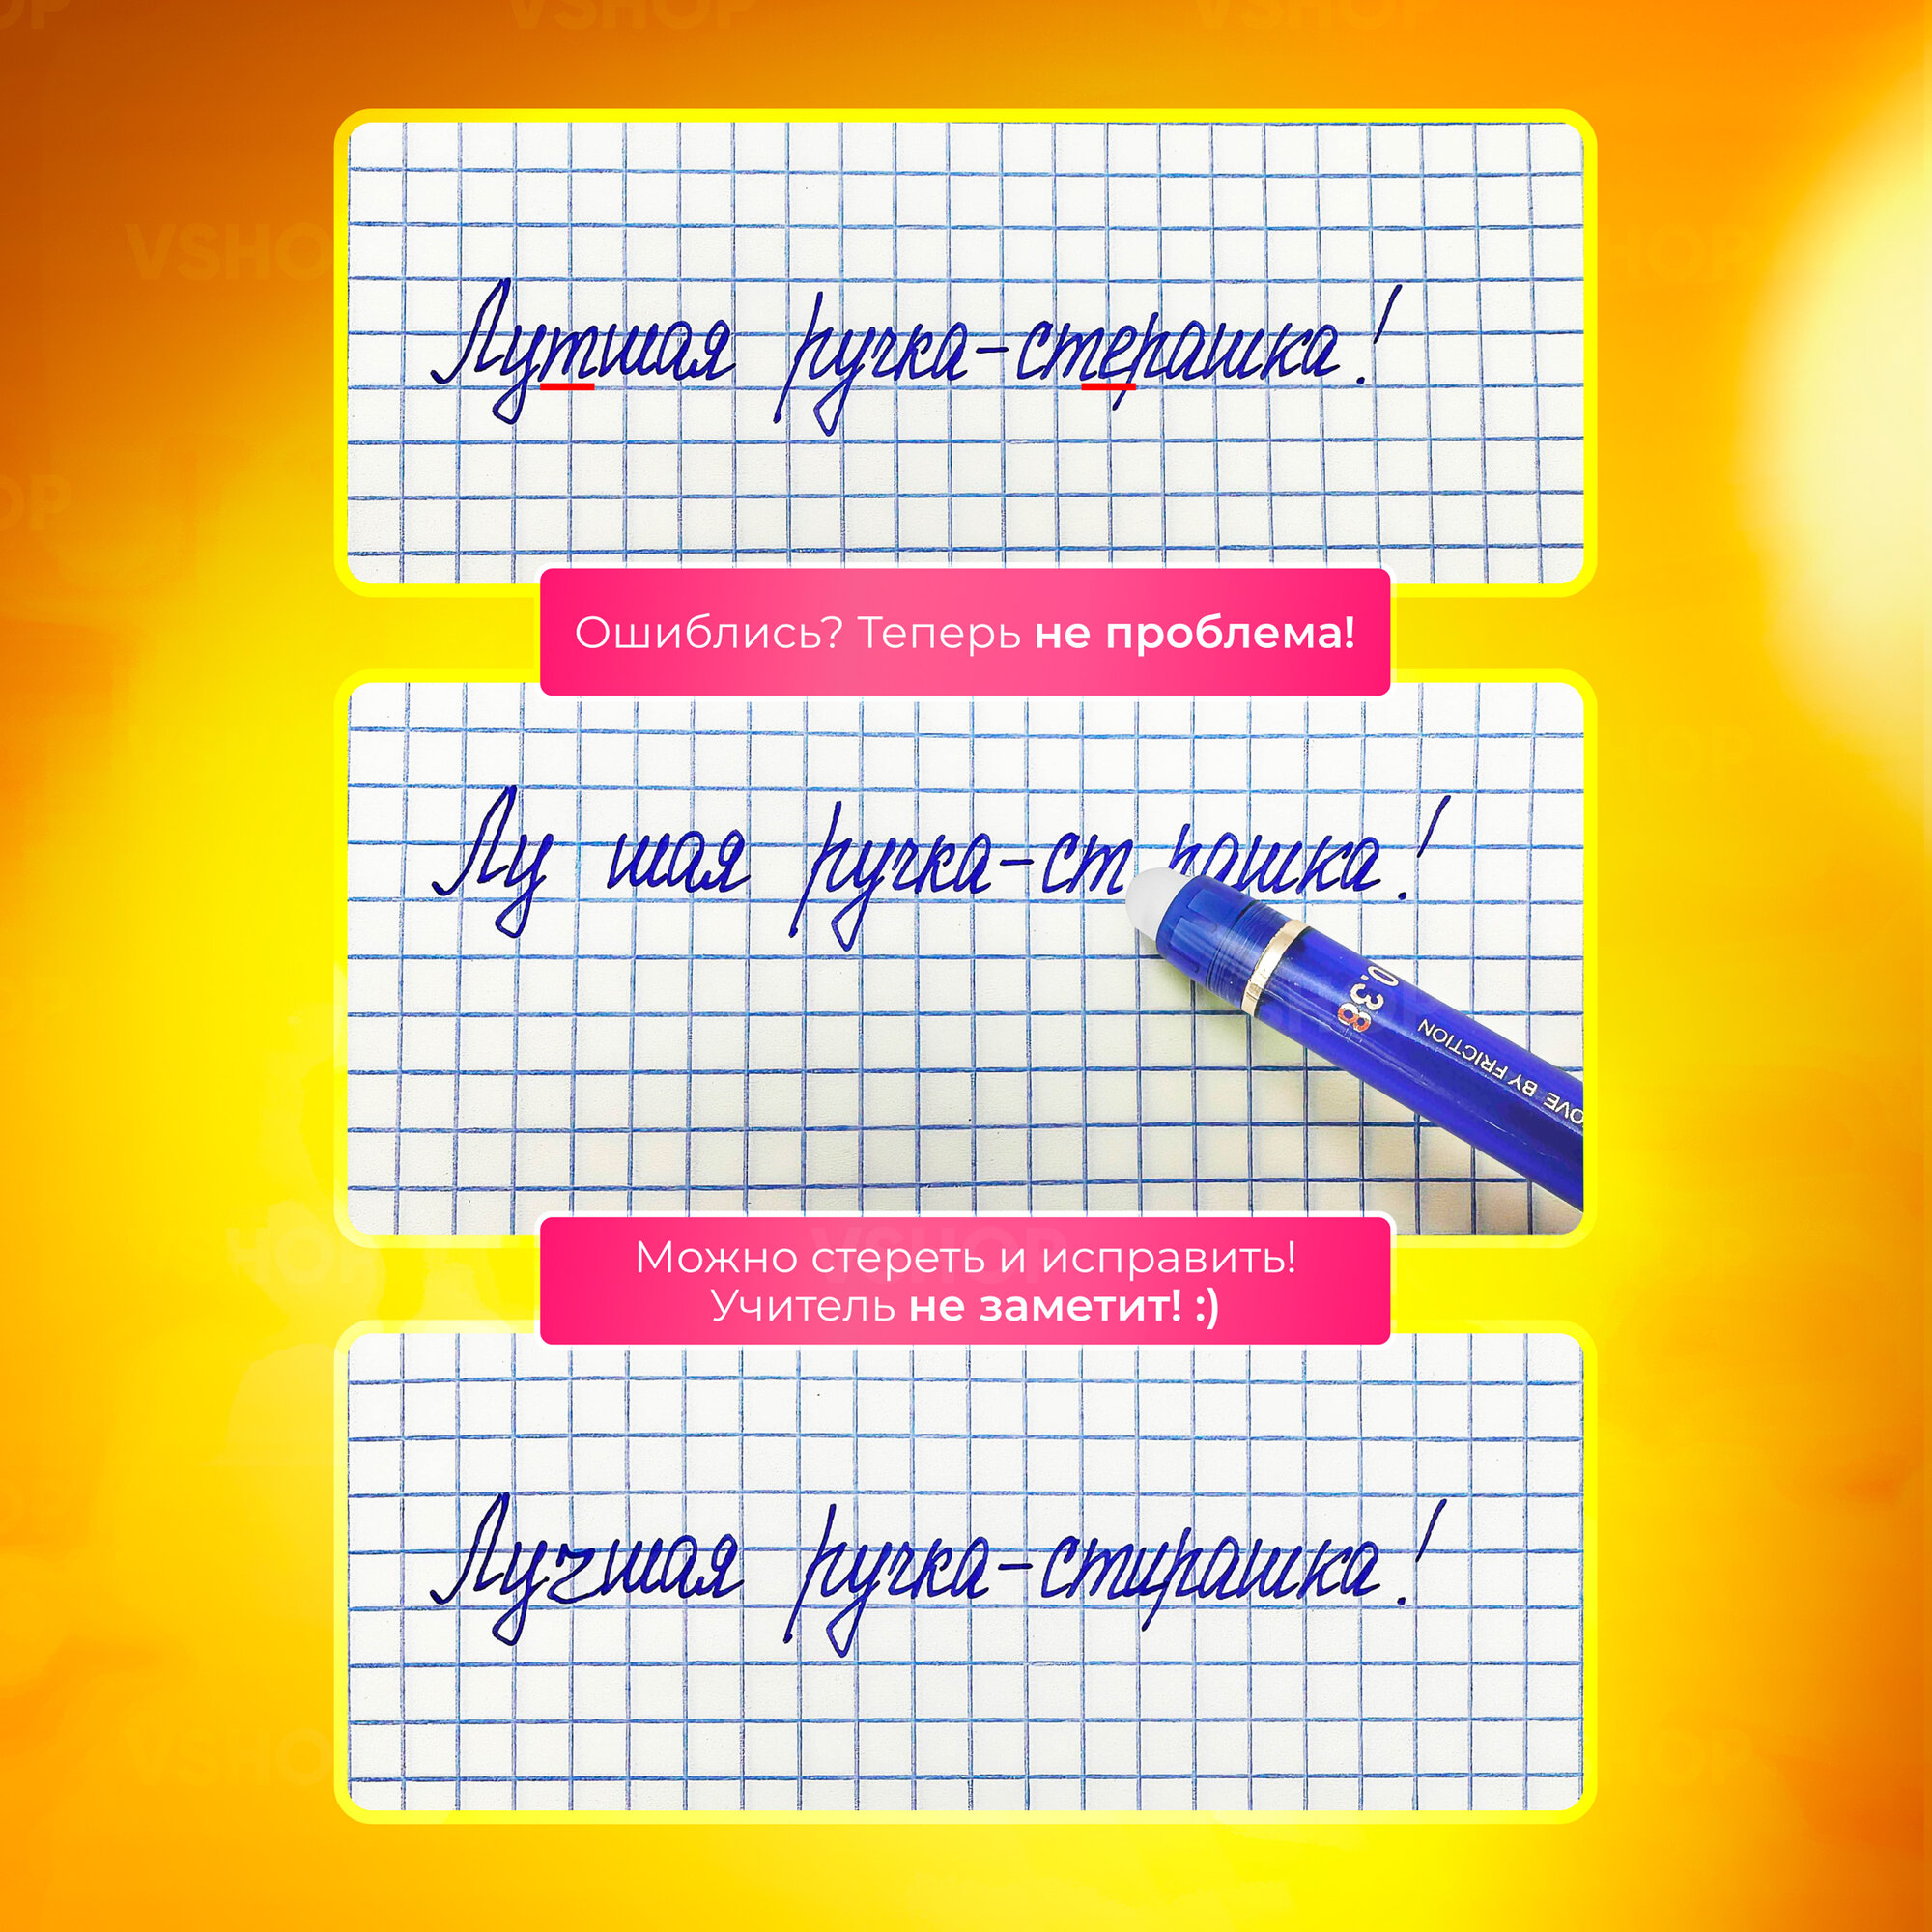 VSHOP
VSHOP
Лутшая ручка-стерашка!
Ошиблись? Теперь не проблема!
Лу шая ручка-ст рашка!
0.38
BY FRICTION
Можно стереть и исправить!
Учитель не заметит! :)
Лучшая ручка-стирашка!